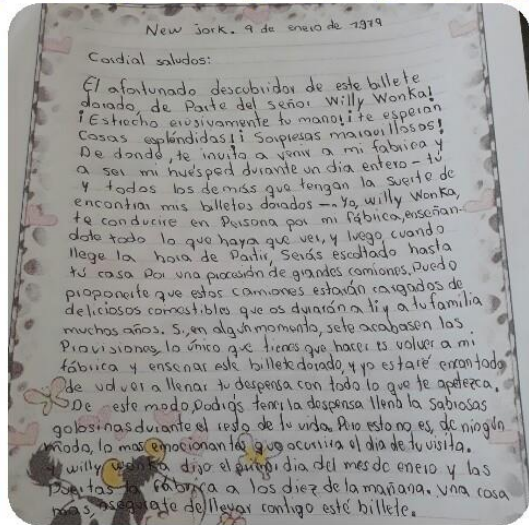 New jork. 9 de enero de 1979
Cordial saludos:
El afortunado descubridor de este billete
dorado, de Parte del señor Willy Wonka!
¡Estrecho erusivamente tu mano!¡te esperan
Cosas espléndidas!¡ Sorpresas maravillosas!
De donde, te invito a venir a mi fabrica y
a ser mi huésped durante un dia entero - tú
y todos los demás que tengan la suerte de
encontrar mis billetos dorados -. Yo, willy Wonka,
te conducire en Persona por mi fábrica, enseñan-
dote todo lo que haya que ver, y luego, cuando
llege la hora de Partir, Serás escoltado hasta
tú casa Por una procesión de grandes camiones. Puedo
proponerte que estos camiones estarán cargados de
deliciosos comestibles que os durarán a ti y a tu familia
muchos años. Si, en algún momento, sete acabasen las
Provisiones, lo único que tienes que hacer es volver a mi
fábrica y enseñar este billete dorado, y yo estaré encantado
de volver a llenar tu despensa con todo lo que te apetezca.
De este modo, Podrás tener la despensa llena la sabrosas
golosinas durante el resto de tu vida. Pero esto no es, de ningún
modo, lo mas emocionantes que ocurrira el dia de tu visita.
y willy wonka dijo el dia del mes de enero y las
Puertas fábrica a los diez de la mañana. Una cosa
mas, asegurate de llevar contigo esté billete.